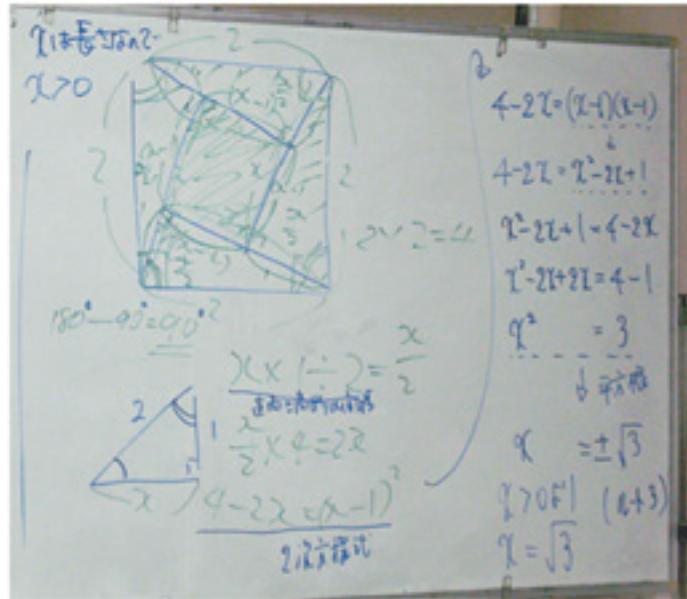 xは長さなので
x>0
2
2
2
2×2=4
180°-90°=90°
2
x×1÷2=x/2
x/2×4=2x
2
1
x
4-2x=(x-1)²
2次方程式
4-2x=(x-1)(x-1)
↓
4-2x=x²-2x+1
x²-2x+1=4-2x
x²-2x+2x=4-1
x² =3
↓平方根
x =±√3
x>0より
x=√3